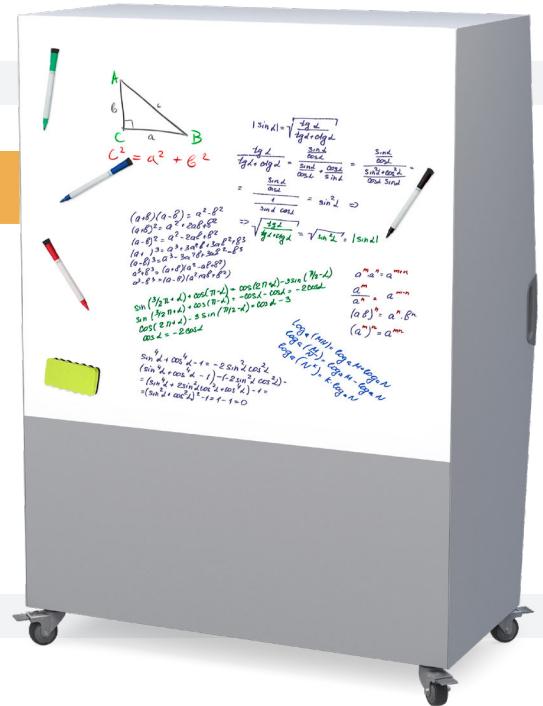 A
в
c
C
a
B
c² = a² + в²
|sin α| = √(tg α / (tg α + ctg α))
tg α / (tg α + ctg α) = (sin α / cos α) / (sin α / cos α + cos α / sin α) = (sin α / cos α) / ((sin²α + cos²α) / (cos α sin α)) =
= (sin α / cos α) / (1 / (sin α cos α)) = sin²α ⇒
⇒ √(tg α / (tg α + ctg α)) = √(sin²α) = |sin α|
(a+в)(a-в) = a²-в²
(a+в)² = a²+2aв+в²
(a-в)² = a²-2aв+в²
(a+ )³ = a³+3a²в+3aв²+в³
(a-в)³ = a³-3a²в+3aв²-в³
a³+в³ = (a+в)(a²-aв+в²)
a³-в³ = (a-в)(a²+aв+в²)
sin(3/2π+α)+cos(π-α)+cos(2π+α)-3sin(π/2-α)
sin(3/2π+α)+cos(π-α) = -cosα-cosα = -2cosα
cos(2π+α)-3sin(π/2-α) = cosα-3
cosα = -2cosα
aᵐaⁿ = aᵐ⁺ⁿ
aᵐ / aⁿ = aᵐ⁻ⁿ
(aв)ⁿ = aⁿ·вⁿ
(aᵐ)ⁿ = aᵐⁿ
sin⁴α+cos⁴α-1 = -2sin²α cos²α
(sin⁴α+cos⁴α-1)-(-2sin²α cos²α) =
= (sin⁴α+2sin²α cos²α+cos⁴α)-1 =
= (sin²α+cos²α)²-1 = 1-1 = 0
logₐ(MN) = logₐM+logₐN
logₐ(M/N) = logₐM-logₐN
logₐ(Nᵏ) = k·logₐN